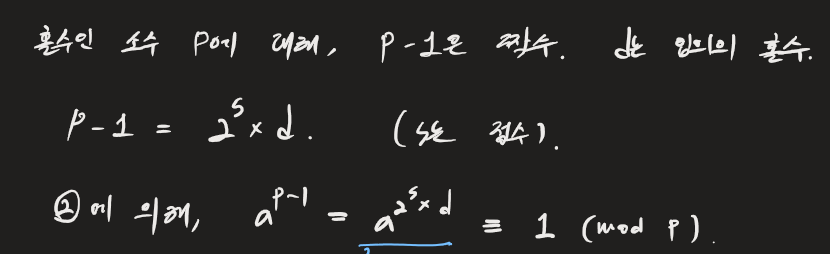 홀수인 소수 P에 대해, P-1은 짝수. d는 임의의 홀수.
P-1 = 2^s × d. (s는 정수).
②에 의해, a^{p-1} = a^{2^s × d} ≡ 1 (mod P).